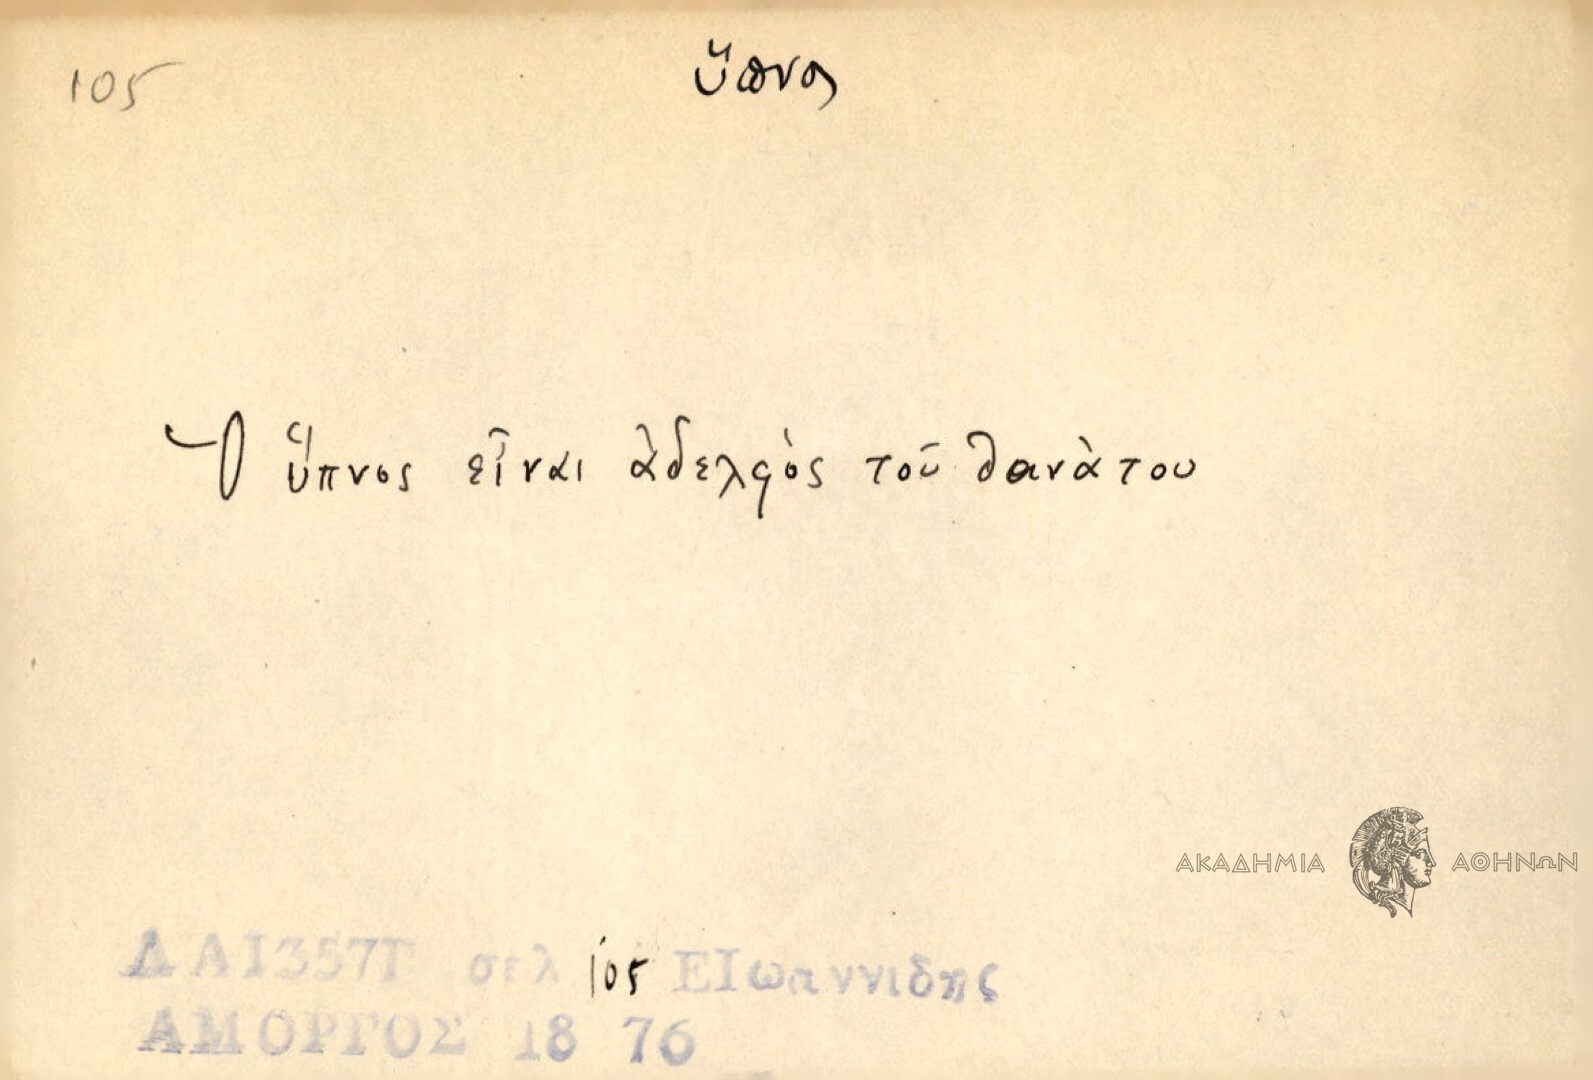 105
ὕπνος
Ὁ ὕπνος εἶναι ἀδελφὸς τοῦ θανάτου
ΑΚΑΔΗΜΙΑ ΑΘΗΝΩΝ
ΛΑ1357Γ σελ 105 ΕΙωαννιδης
ΑΜΟΡΓΟΣ 18 76